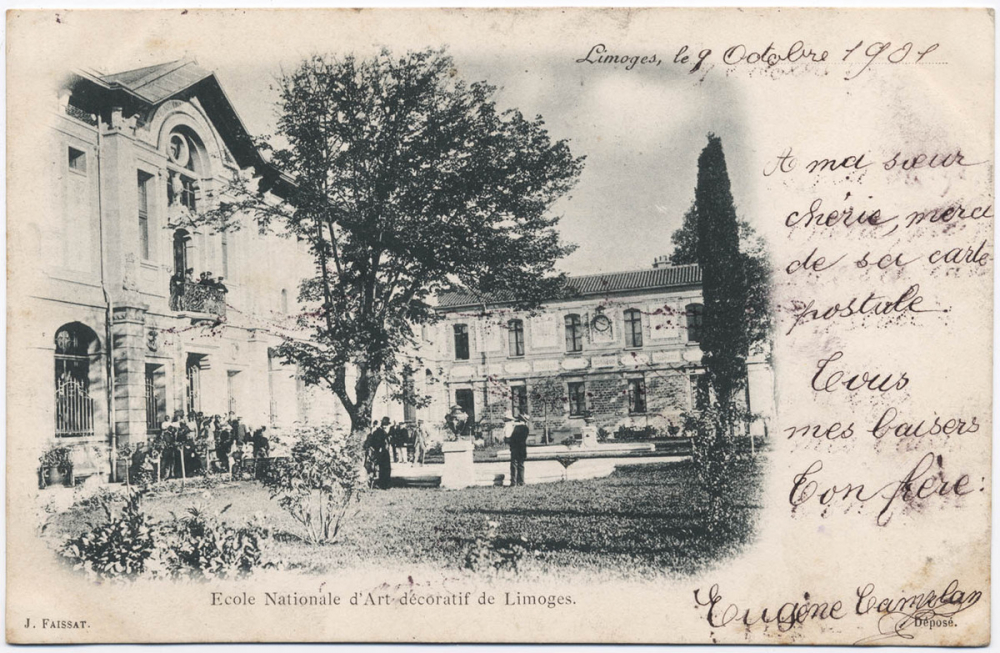 Limoges, le 9 Octobre 1901
A ma sœur
chérie, merci
de sa carte
postale
Tous
mes baisers
Ton frère.
Eugène
Ecole Nationale d'Art décoratif de Limoges.
J. FAISSAT.
Déposé.